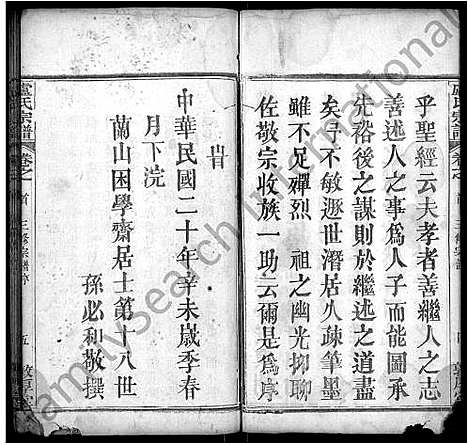 乎聖經云夫孝者善繼人之志
善述人之事爲人子而能圖承
先裕後之謀則於繼述之道盡
矣予不敏遯世潛居久疎筆墨
雖不足禪烈　祖之幽光抑聊
佐敬宗收族一助云爾是爲序
旹
中華民國二十年辛未歲季春
月下浣
蘭山困學齋居士第十八世
孫必和敬撰
盧氏宗譜
卷之首
三修宗譜序
五
敦厚堂
familysearch international